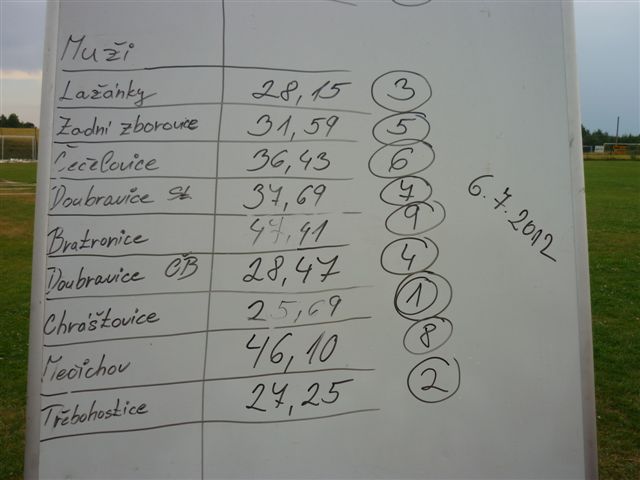 Muži
Lažánky 28,15 3
Zadní zborovice 31,59 5
Čečelovice 36,43 6
Doubravice St 37,69 7
Bratronice 47,41 9
Doubravice ČB 28,47 4
Chrášťovice 25,69 1
Mečichov 46,10 8
Třebohostice 27,25 2
6.7.2012